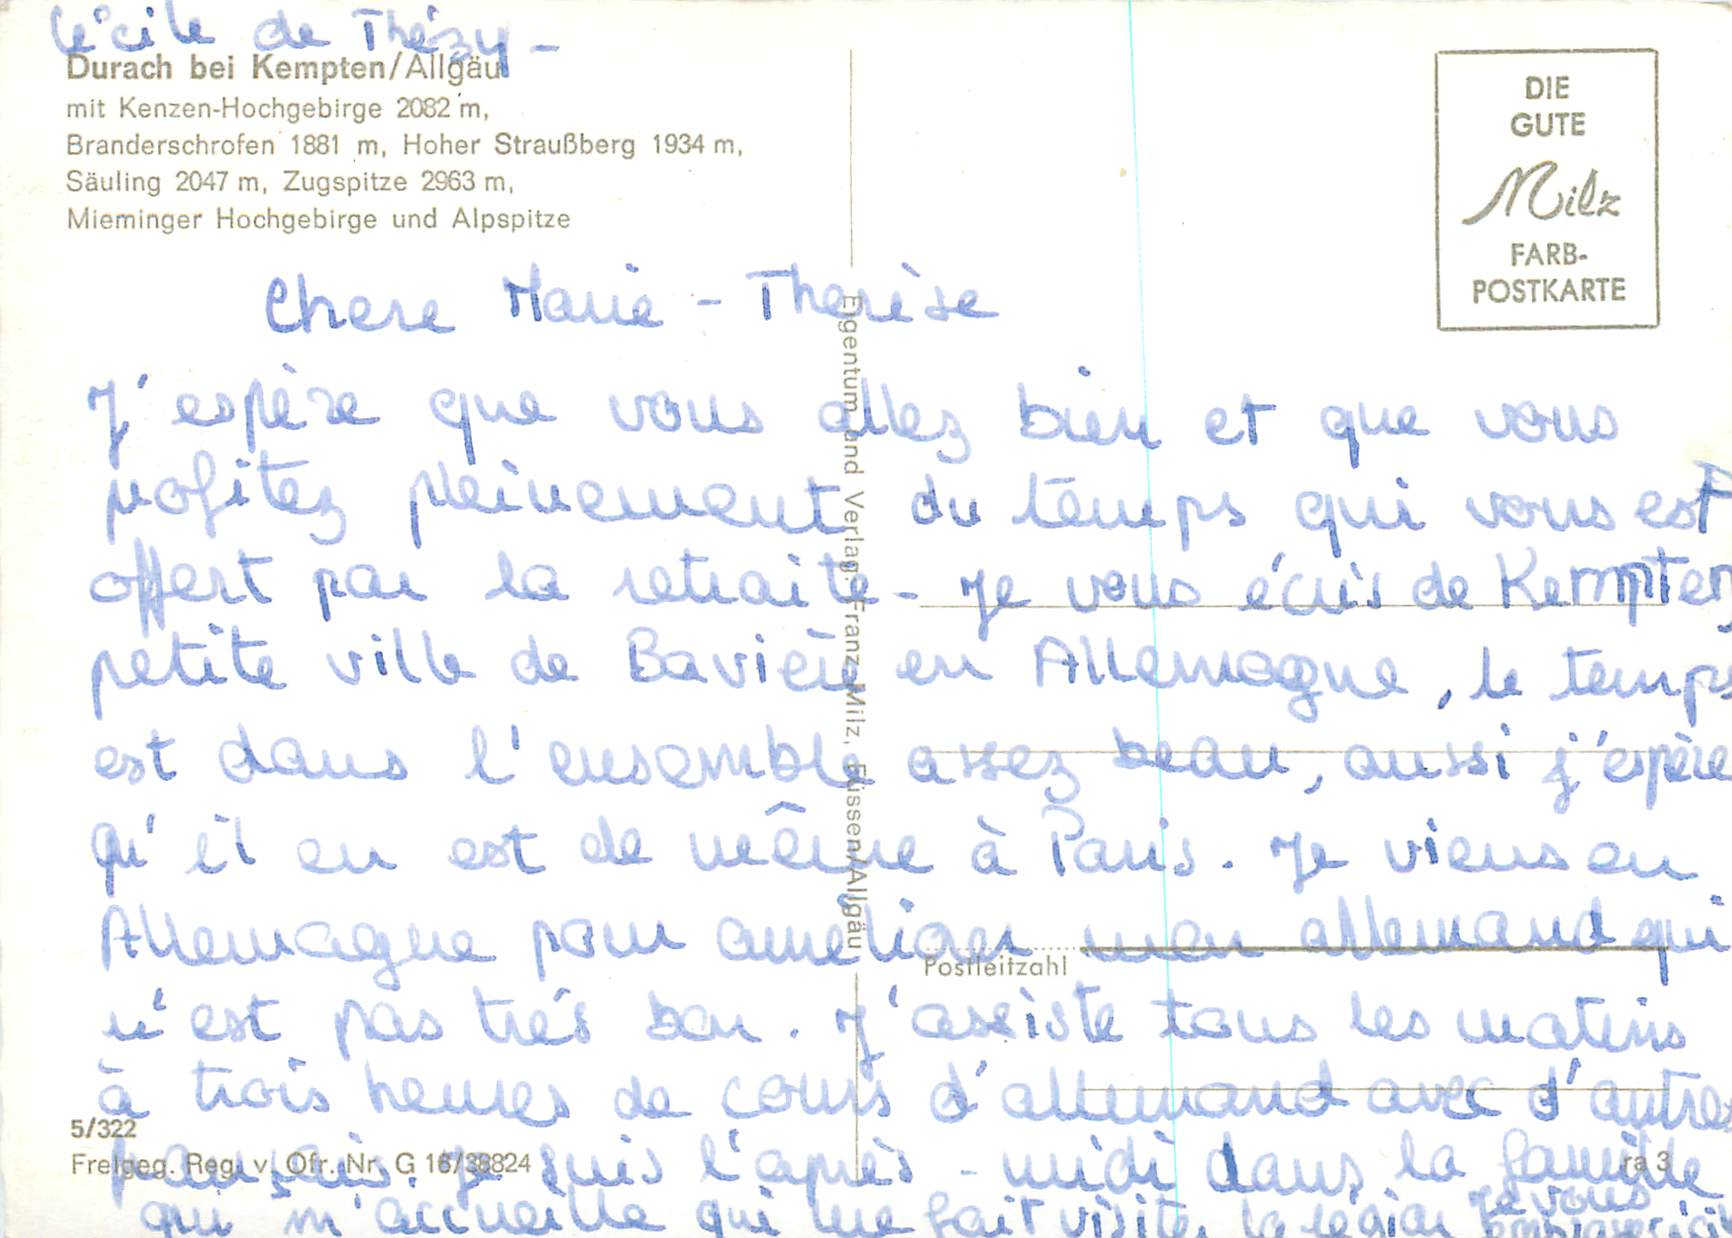 Cécile de Thézy -
Durach bei Kempten/Allgäu
mit Kenzen-Hochgebirge 2082 m,
Branderschrofen 1881 m, Hoher Straußberg 1934 m,
Säuling 2047 m, Zugspitze 2963 m,
Mieminger Hochgebirge und Alpspitze
DIE
GUTE
Milz
FARB-
POSTKARTE
Eigentum und Verlag: Franz Milz, Füssen/Allgäu
Chere Marie - Therèse
J'espère que vous allez bien et que vous
profitez pleinement du temps qui vous est
offert par la retraite - Je vous écris de Kempten,
petite ville de Bavière en Allemagne, le temps
est dans l'ensemble assez beau, aussi j'espère
qu'il en est de même à Paris. Je viens en
Allemagne pour améliorer mon allemand qui
n'est pas trés bon. J'assiste tous les matins
à trois heures de cours d'allemand avec d'autres
français. Je suis l'après - midi dans la famille
qui m'accueille qui me fait visiter la région Je vous
embrasse
Postleitzahl
5/322
Freigeg. Reg. v. Ofr. Nr. G 16/38824
ra 3